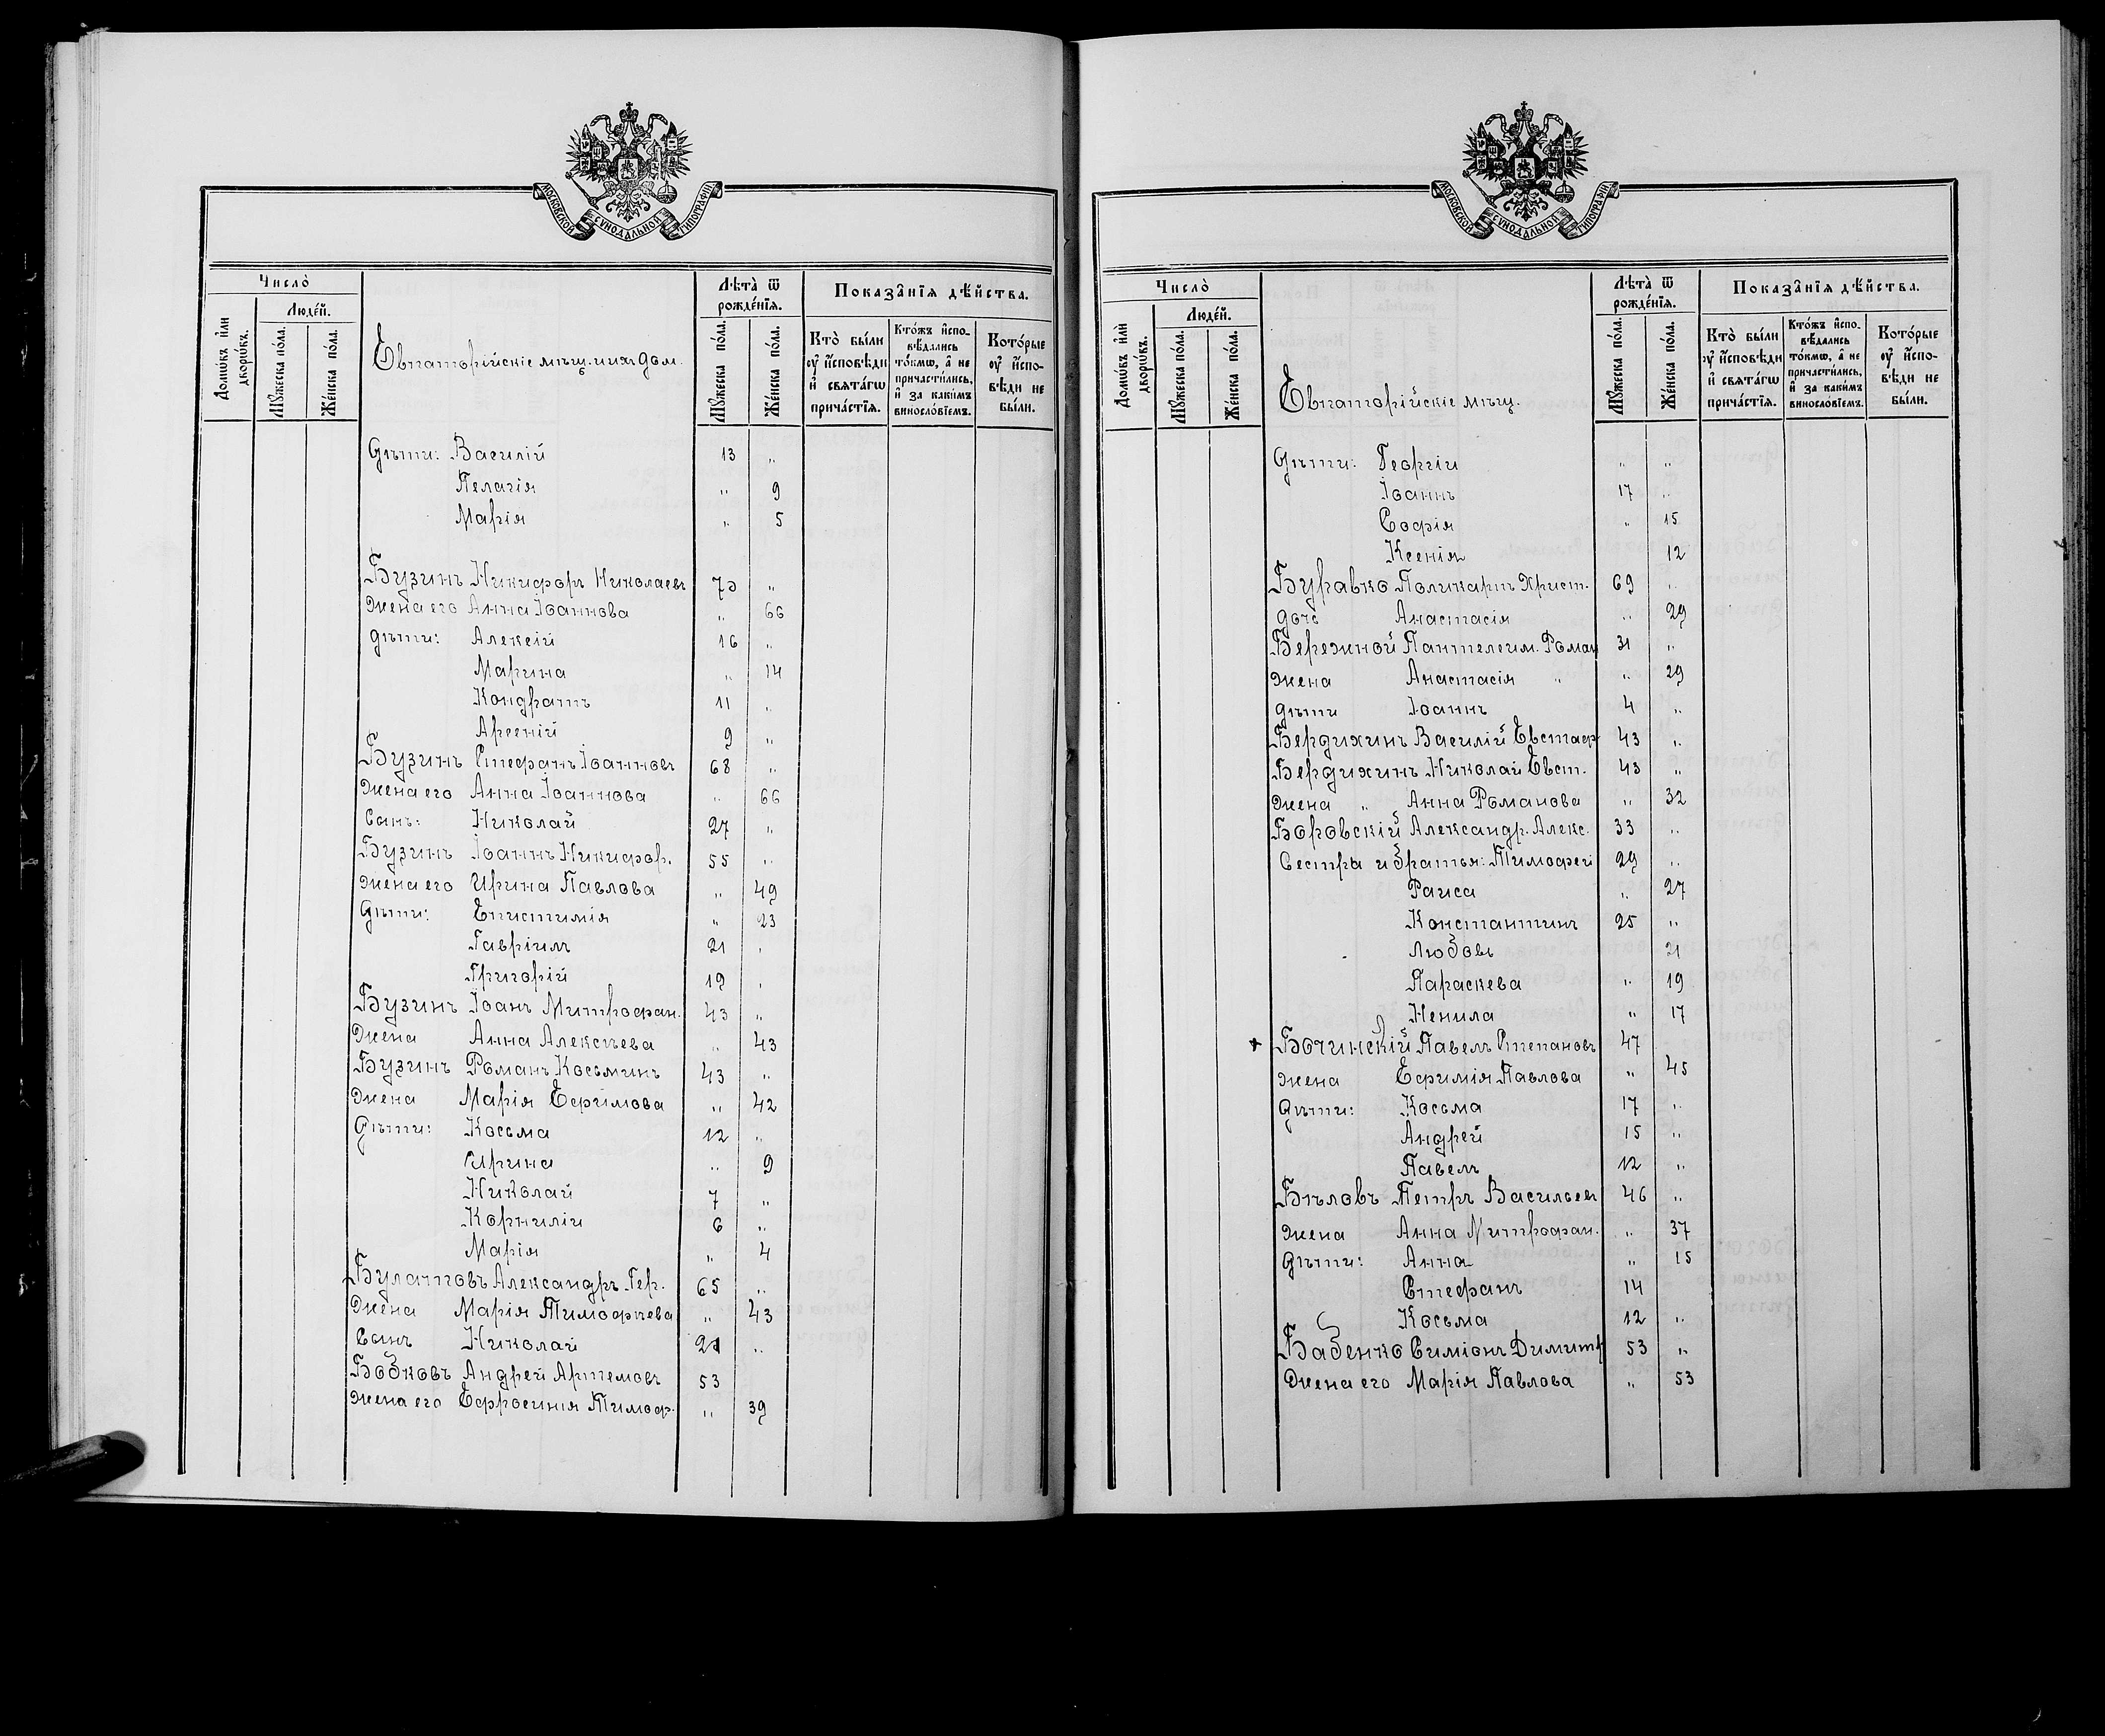 МОСКОВСКОЙ СѴНОДАЛЬНОЙ ТИПОГРАФІИ
Число̀
Домѡ́въ и҆лѝ дворѡ́въ.
Люде́й.
Мꙋ́жеска по́ла.
Же́нска по́ла.
Евпаторійскіе мѣщ. и ихъ дом.
Лѣ́та ѿ рожде́нїѧ.
Мꙋ́жеска по́ла.
Же́нска по́ла.
Показа̑нїѧ дѣ́йства.
Кто̀ бы́ли оу҆ и҆сповѣ́ди и҆ свѧта́гѡ прича́стїѧ.
Кто́жъ и҆сповѣ́дались то́кмѡ, а҆ не причасти́лись, и҆ за каки́мъ винословїемъ.
Кото́рые оу҆ и҆сповѣ́ди не бы́ли.
Дѣти: Василій 13 "
Пелагія " 9
Марія " 5
Бузинъ Никифоръ Николаевъ 70 "
Жена его Анна Іоаннова " 66
дѣти: Алексій 16 "
Марина " 14
Кондратъ 11 "
Арсеній 9 "
Бузинъ Стефанъ Іоанновъ 68 "
Жена его Анна Іоаннова " 66
Сынъ: Николай 27 "
Бузинъ Іоаннъ Никифор. 55 "
Жена его Ирина Павлова " 49
Дѣти: Епистимія " 23
Гавріилъ 21 "
Григорій 19 "
Бузинъ Іоанъ Митрофан. 43 "
Жена Анна Алексѣева " 43
Бузинъ Романъ Косьминъ 43 "
Жена Марія Ефимова " 42
Дѣти: Косьма 12 "
Ирина " 9
Николай 7 "
Корнилій 6 "
Марія " 4
Булатовъ Александръ Гер. 65 "
Жена Марія Тимофѣева " 43
Сынъ Николай "
Бобковъ Андрей Артемовъ 53
Жена его Ефросинія Тимоф. " 39
МОСКОВСКОЙ СѴНОДАЛЬНОЙ ТИПОГРАФІИ
Число̀
Домѡ́въ и҆лѝ дворѡ́въ.
Люде́й.
Мꙋ́жеска по́ла.
Же́нска по́ла.
Евпаторійскіе мѣщ.
Лѣ́та ѿ рожде́нїѧ.
Мꙋ́жеска по́ла.
Же́нска по́ла.
Показа̑нїѧ дѣ́йства.
Кто̀ бы́ли оу҆ и҆сповѣ́ди и҆ свѧта́гѡ прича́стїѧ.
Кто́жъ и҆сповѣ́дались то́кмѡ, а҆ не причасти́лись, и҆ за каки́мъ винословїемъ.
Кото́рые оу҆ и҆сповѣ́ди не бы́ли.
Дѣти: Георгій " "
Іоаннъ 17 "
Софія " 15
Ксенія 12
Буравко Поликарпъ Христ. 69 "
дочь Анастасія " 29
Бережной Пантелеим. Роман 31 "
жена Анастасія " " 29
дѣти Іоаннъ 4 "
Бердихинъ Василій Евстаф 43 "
Бердихинъ Николай Евст. 43 "
жена " Анна Романова " 32
Боровскій Александр. Алекс. 33 "
Сестра и братья: Тимофей 29 "
Раиса " 27
Константинъ 25 "
Любовь 21
Параскева " 19
Ненила " 17
Бочинскій Павелъ Степановъ 47
жена Ефимія Павлова " 45
Дѣти: Косьма 17 "
Андрей 15 "
Павелъ 12 "
Бѣловъ Петръ Васильев 46 "
жена Анна Митрофан. " 37
Дѣти: Анна " 15
Стефанъ 14
Косьма 12 "
Бабенко Симіонъ Димитр 53 "
Жена его Марія Павлова " 53